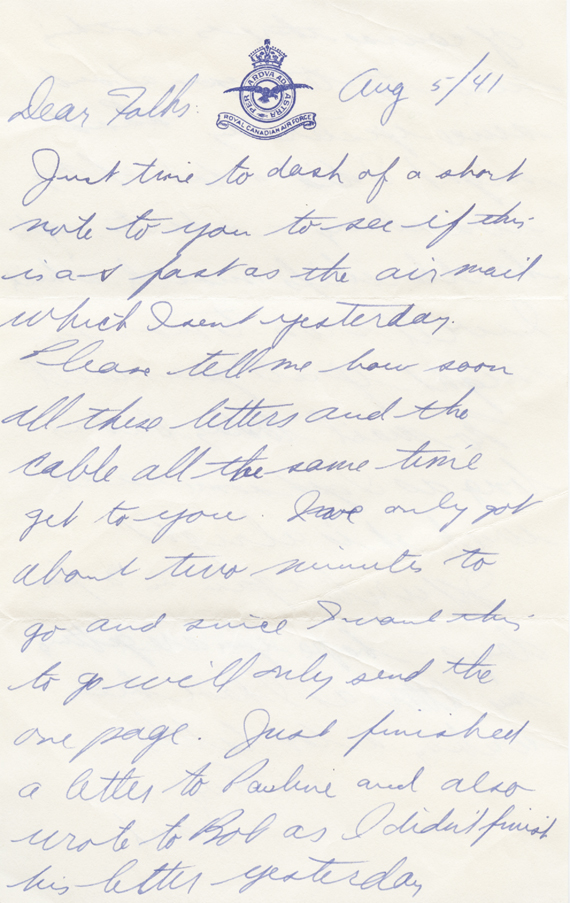 PER ARDVA AD ASTRA
ROYAL CANADIAN AIR FORCE
Aug 5/41
Dear Folks:
Just time to dash of a short
note to you to see if this
is as fast as the air mail
which I sent yesterday.
Please tell me how soon
all these letters and the
cable all the same time
get to you. I've only got
about two minutes to
go and since I want this
to go will only send the
one page. Just finished
a letter to Pauline and also
wrote to Bob as I didn't finish
his letter yesterday